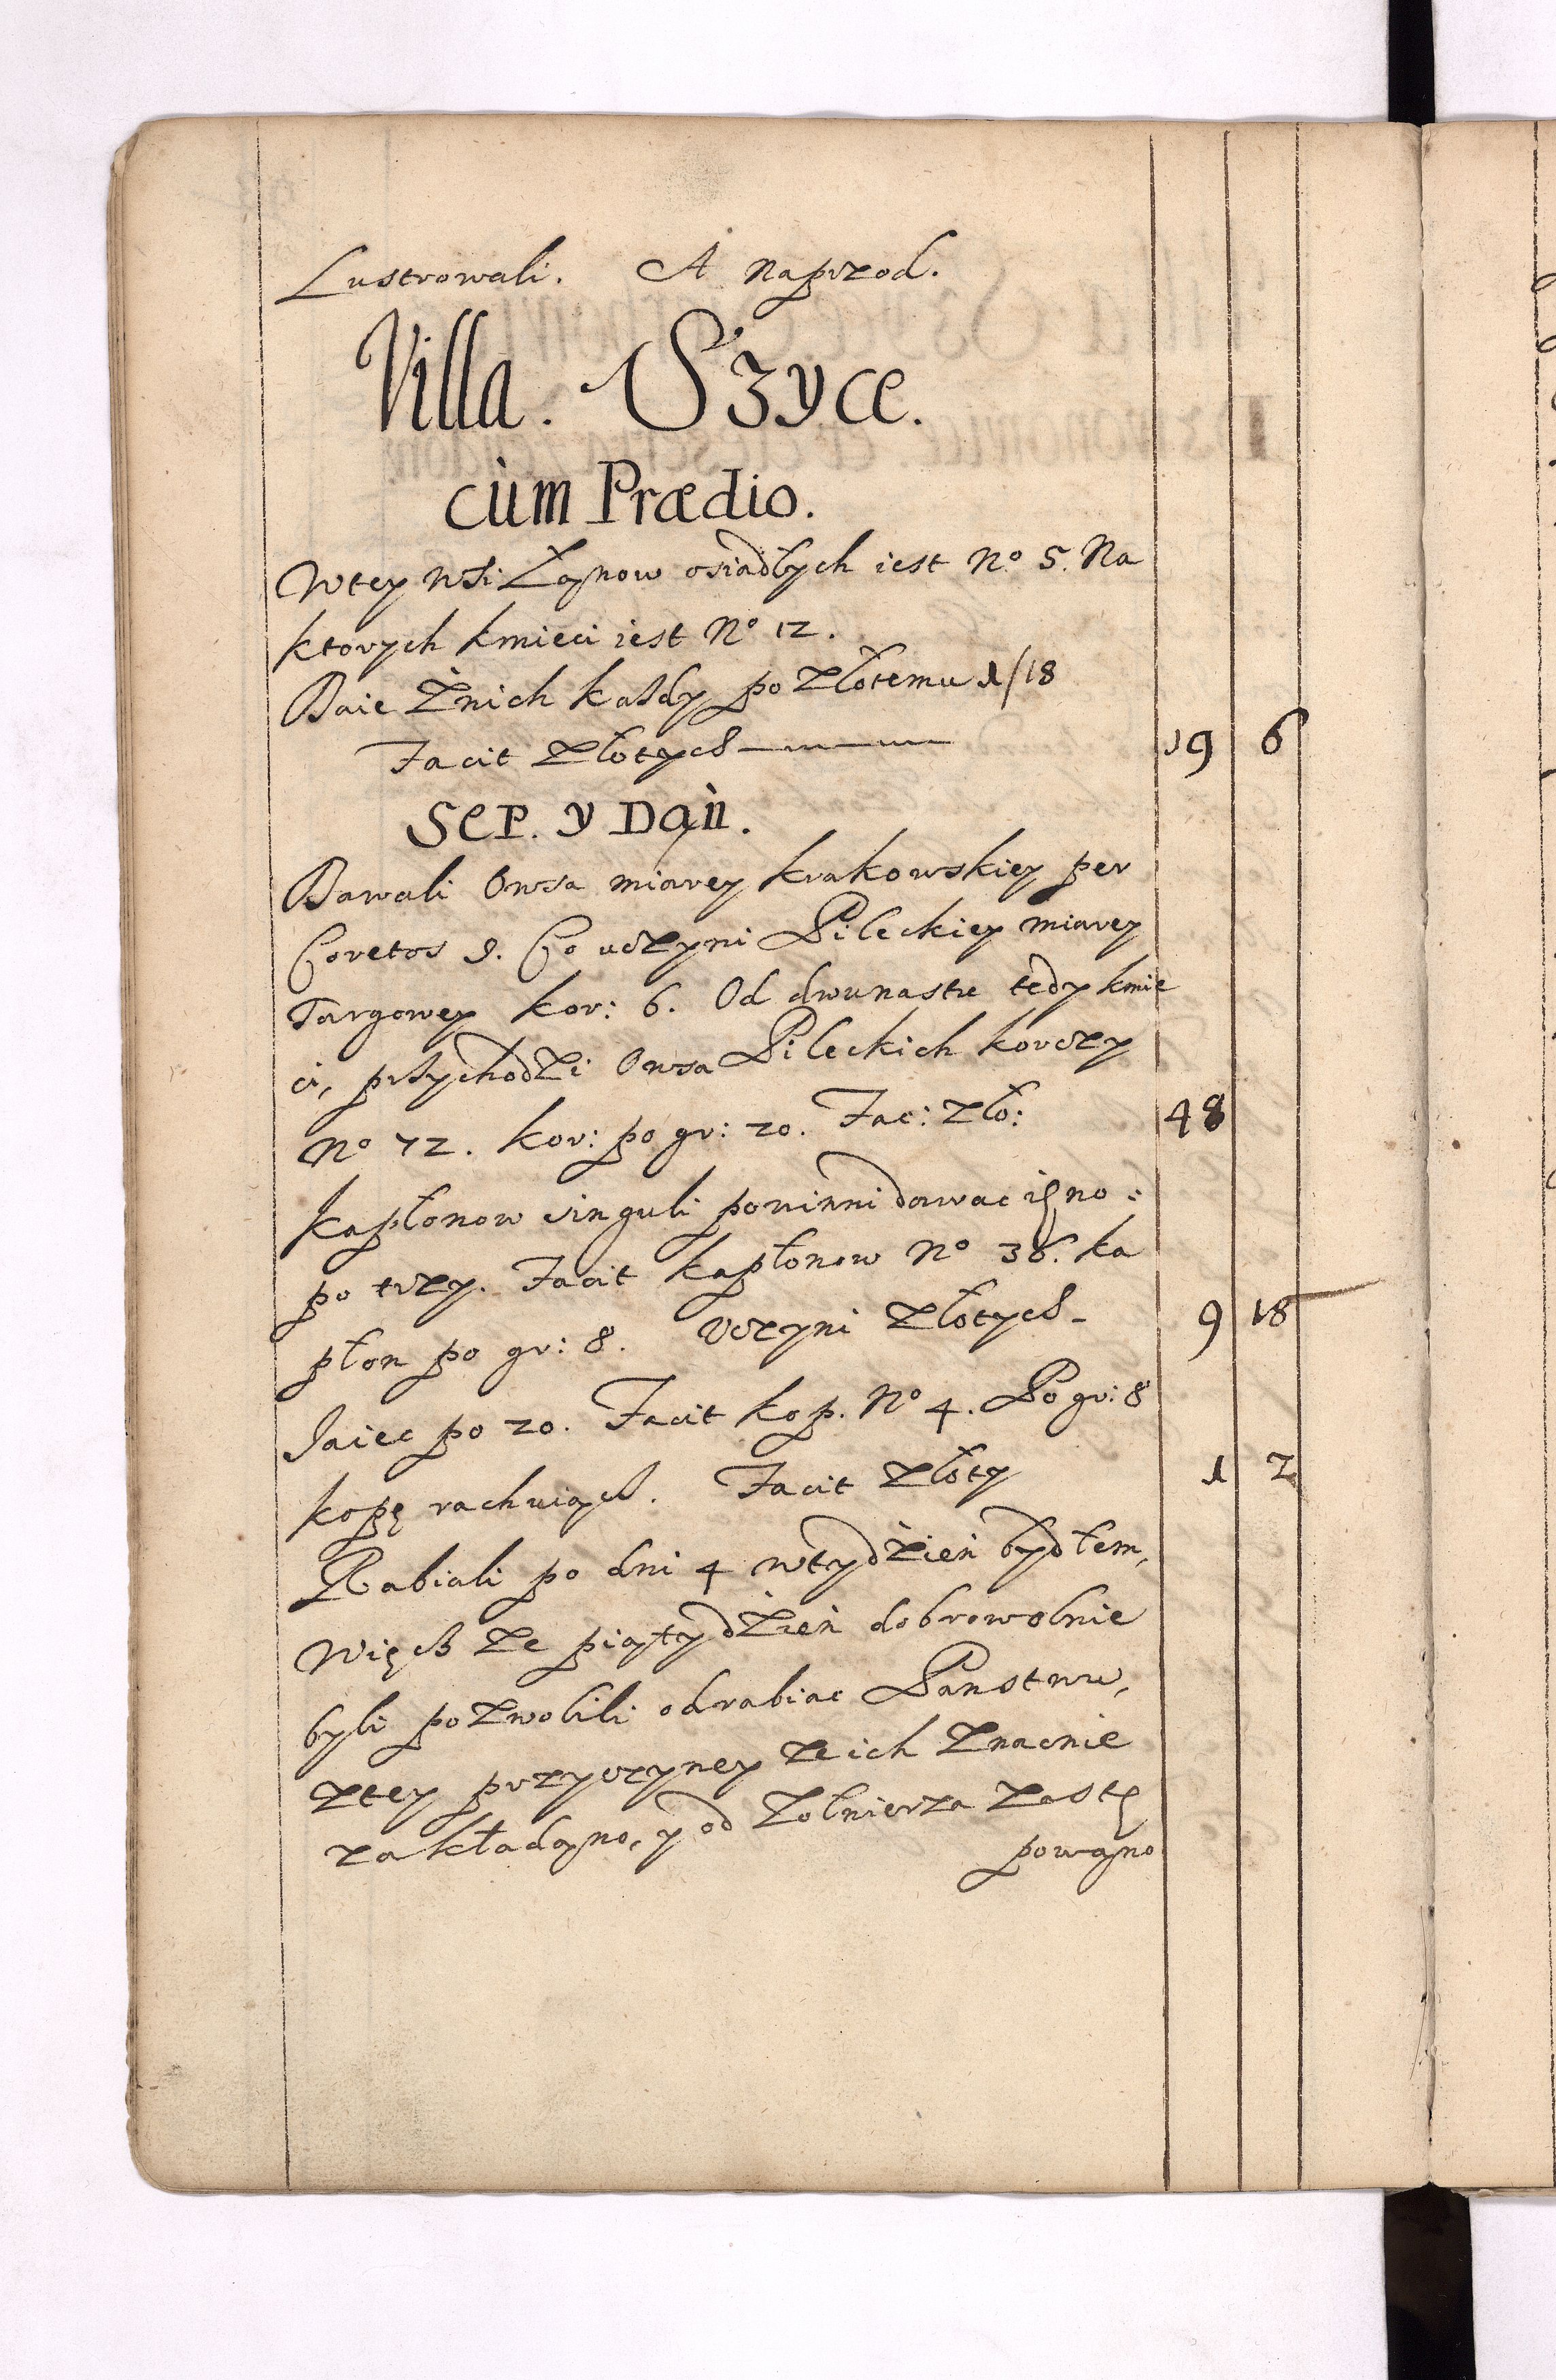 Lustrowali. A naprzod.
Villa. Szyce.
cum Prædio.
Wtey wsi Łanow osiadłych iest No 5. Na
ktorych kmieci iest No 12.
Daie Znich każdy po Złotemu 1/18
Facit Złotych 19 6
Sep. y Dań.
Dawali Owsa miarey krakowskiey per
Coretos 9. Co uczyni Pileckiey miarey
Targowey kor: 6. Od dwunastu tedy kmie
ci, przychodzi Owsa Pileckich korczy
No 72. kor: po gr: 20. Fac: Zło: 48
Kapłonow singuli powinni dawac
po trzy. Facit kapłonow No 36. ka
płon po gr: 8. Vczyni Złotych 9 18
Iaiec po 20. Facit kop. No 4. Po gr: 8
kopę rachuiąc. Facit Złoty 1 2
Rabiali po dni 4 wtydzień bydłem,
Więc ze piąty dzień dobrowolnie
byli pozwolili odrabiac Panstwu,
ztey przyczyney ze ich znacnie
zakładano, y od Zołnierza zastę
powano